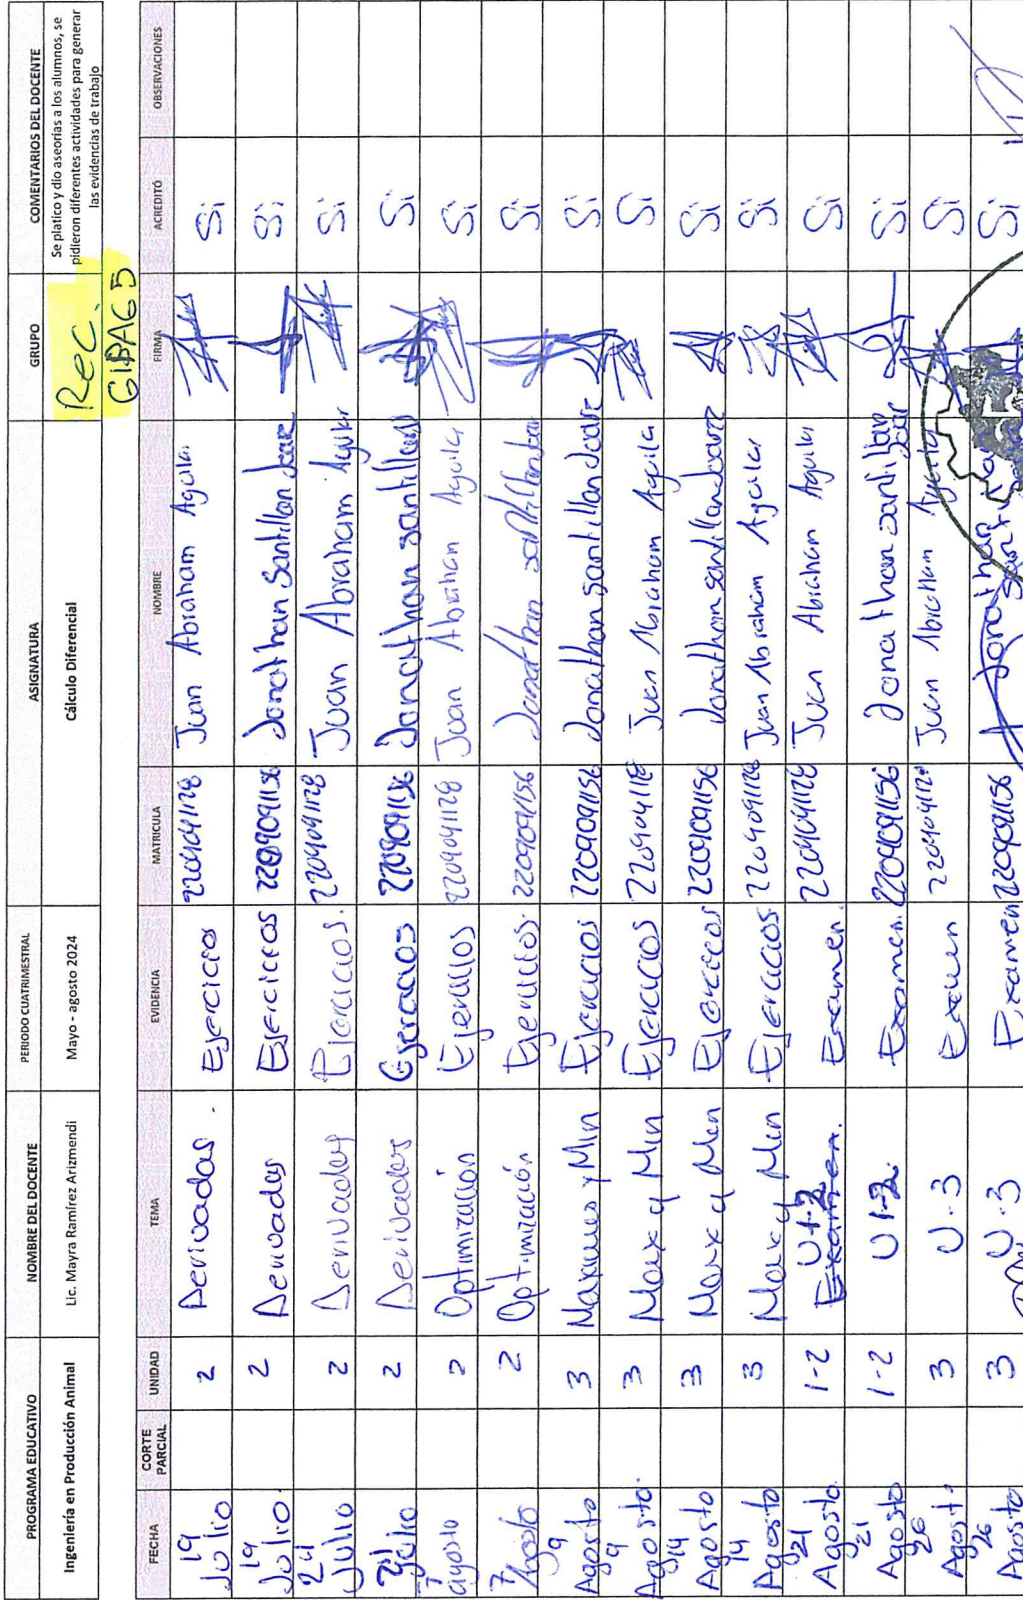 PROGRAMA EDUCATIVO NOMBRE DEL DOCENTE PERIODO CUATRIMESTRAL ASIGNATURA GRUPO COMENTARIOS DEL DOCENTE
Ingeniería en Producción Animal Lic. Mayra Ramírez Arizmendi Mayo - agosto 2024 Cálculo Diferencial Rec.
GIPAG5
Se platico y dio aseorías a los alumnos, se
pidieron diferentes actividades para generar
las evidencias de trabajo
FECHA CORTE PARCIAL UNIDAD TEMA EVIDENCIA MATRICULA NOMBRE FIRMA ACREDITÓ OBSERVACIONES
19 Julio 2 Derivadas. Ejercicios 2209041128 Juan Abraham Aguilar Si
19 Julio. 2 Derivadas Ejercicios 2209091156 Jonathan Santillan Si
24 Julio 2 Derivadas Ejercicios. 2209041128 Juan Abraham Aguilar Si
24 Julio 2 Derivadas Ejercicios 2209091156 Jonathan santillan Si
7 agosto 2 Optimización Ejercicios 2209041128 Juan Abraham Aguilar Si
7 Agosto 2 Optimización Ejercicios. 2209091156 Jonathan santillan Si
9 Agosto 3 Maximos y Min Ejercicios 2209091156 Jonathan santillan Si
9 Agosto. 3 Max y Min Ejercicios 2209041128 Juan Abraham Aguilar Si
14 Agosto 3 Max y Min Ejercicios 2209091156 Jonathan santillan Si
14 Agosto 3 Max y Min Ejercicios. 2209041128 Juan Abraham Aguilar Si
21 Agosto. 1-2 U1-2 Examen. Examen. 2209041128 Juan Abraham Aguilar Si
21 Agosto 1-2 U 1-2. Examen. 2209091156 Jonathan santillan Si
26 Agosto 3 U.3 Examen 2209041128 Juan Abraham Aguilar Si
26 Agosto 3 U.3 Examen 2209091156 Jonathan Si